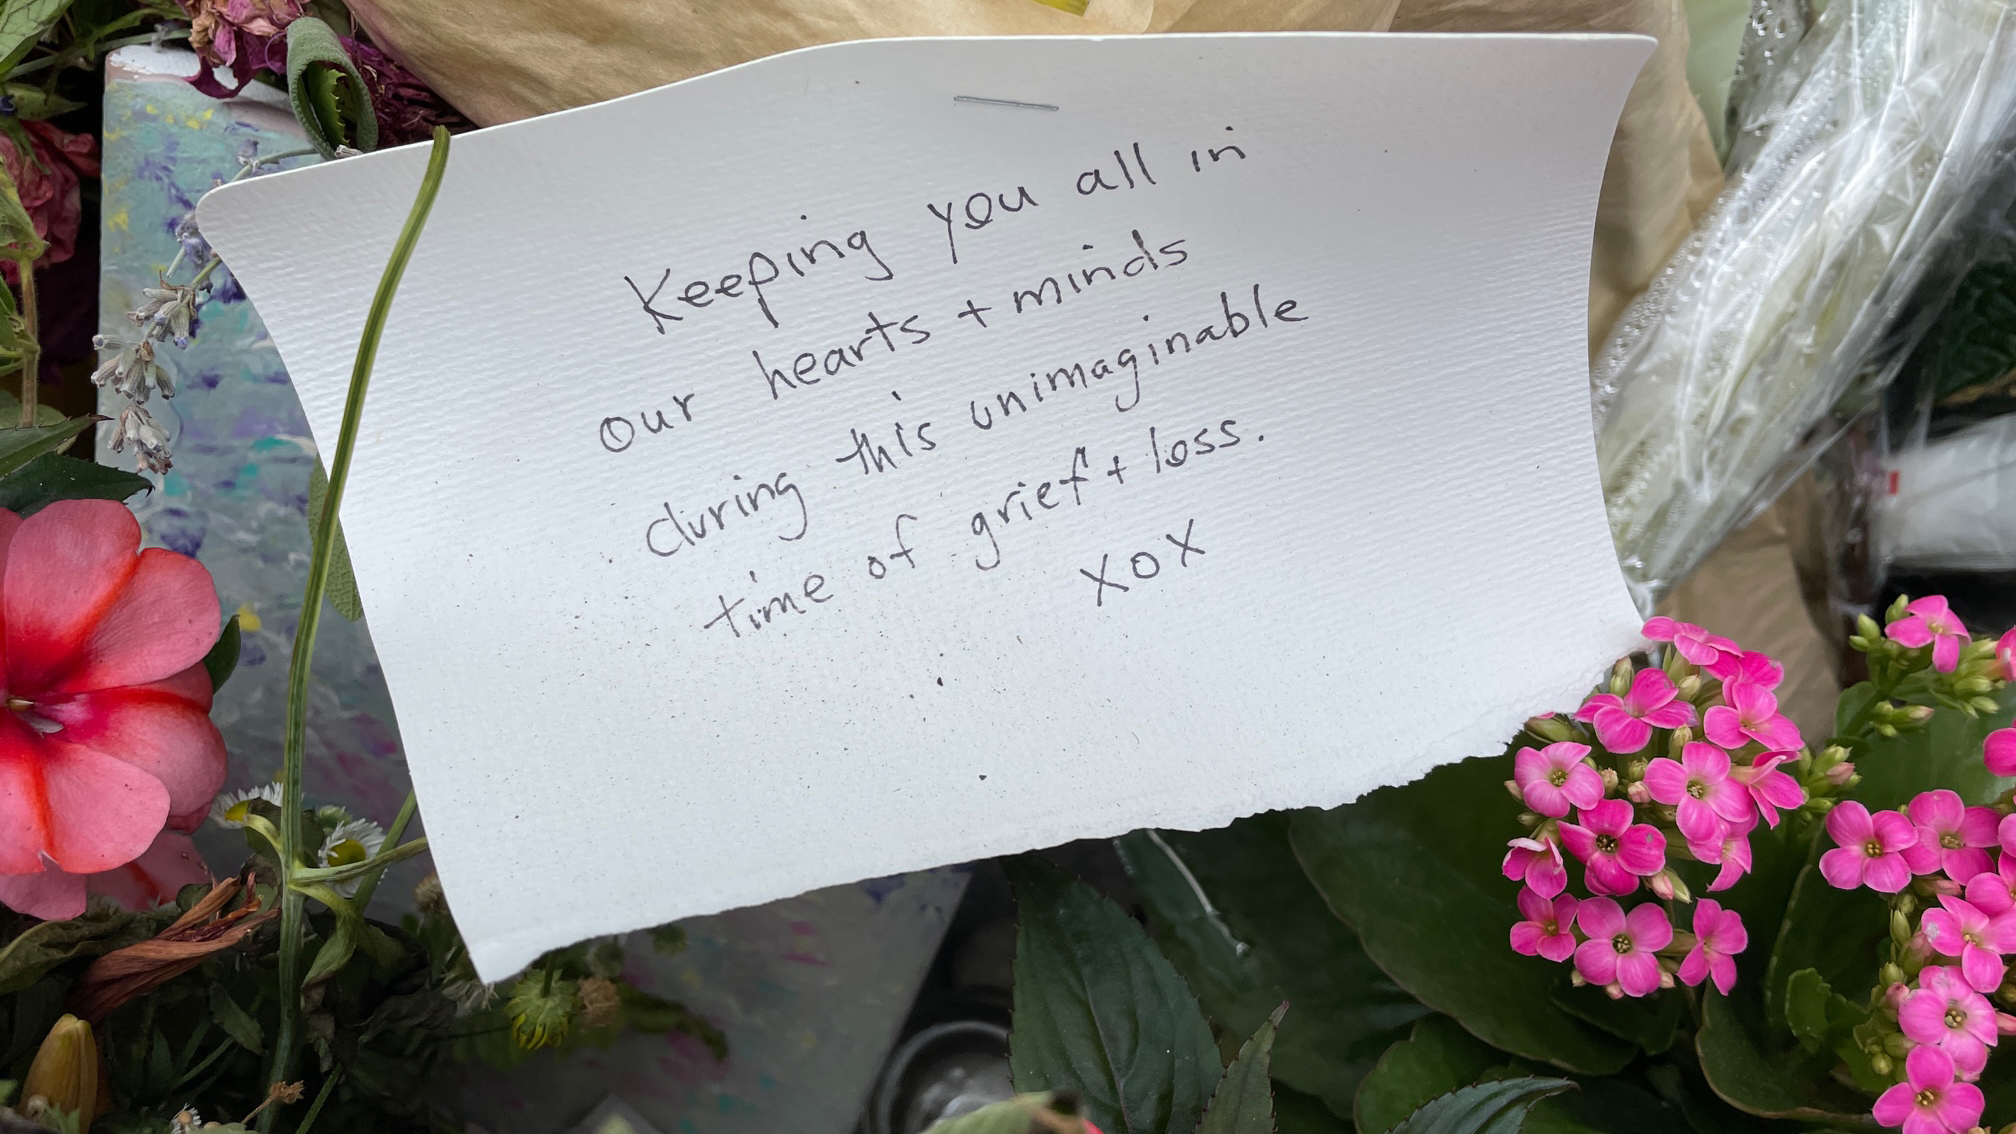 Keeping you all in
our hearts + minds
during this unimaginable
time of grief + loss.
XOX